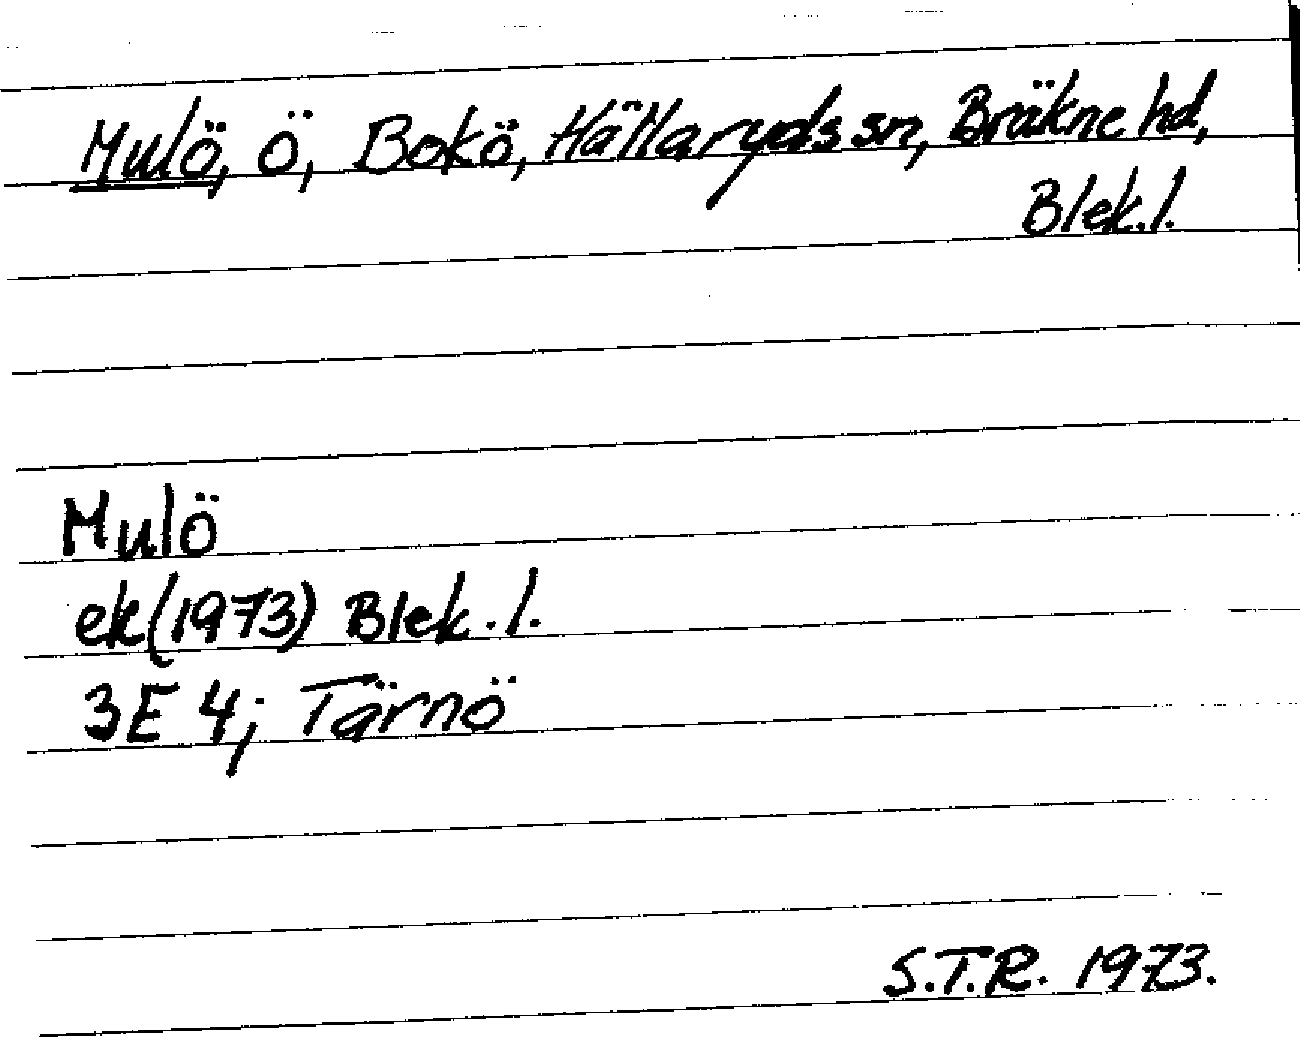 Mulö, ö, Bokö, Hällaryds sn, Bräkne hd,
Blek.l.
Mulö
ek(1973) Blek.l.
3E 4; Tärnö
S.T.R. 1973.